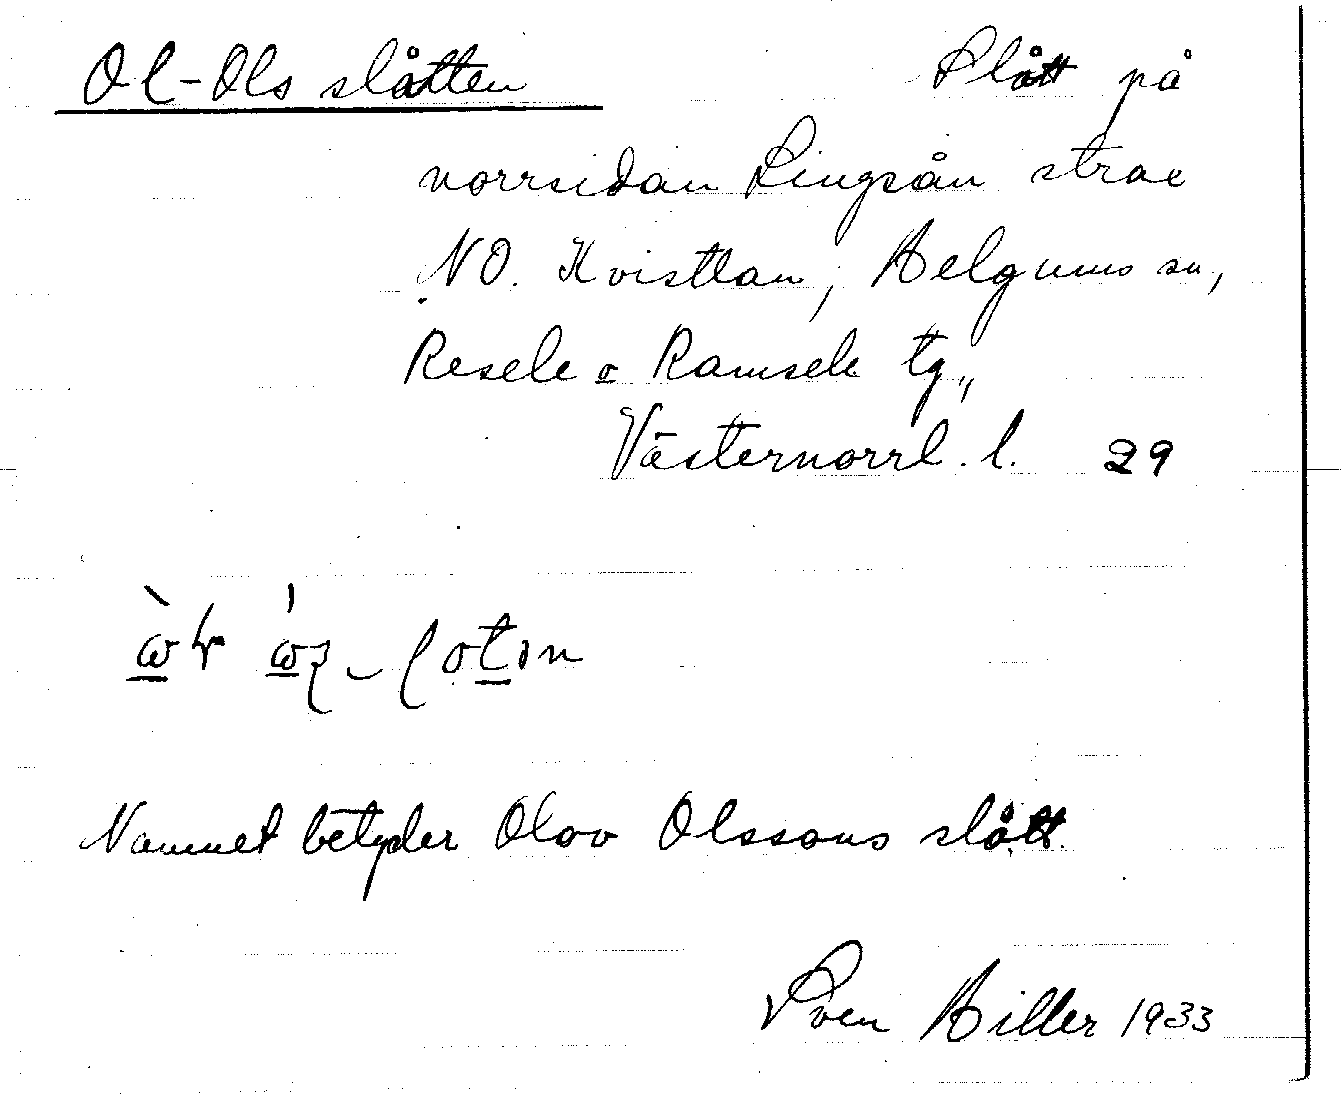 Ol-Ols slåtten Slått på
norrsidan Singsån strax
NO. Kvistlan, Helgums sn,
Resele o Ramsele tg,,
Västernorrl. l. 29
Namnet betyder Olov Olssons slått.
Sven Hiller 1933